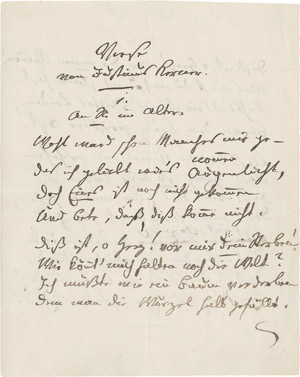 Verse
von Justinus Kerner.
1.
An Sie im Alter.
Wohl ward schon Manches mir ge-
nommen
das ich geliebt wie's Augenlicht,
doch Eines ist noch nicht gekommen
Und bete, daß diß komme nicht.
Diß ist, o Herz! vor mir Dein Sterben!
Wie könnt' mich halten noch die Welt?
Ich müßte wie ein Baum verderben
dem man die Wurzel halb gefällt.